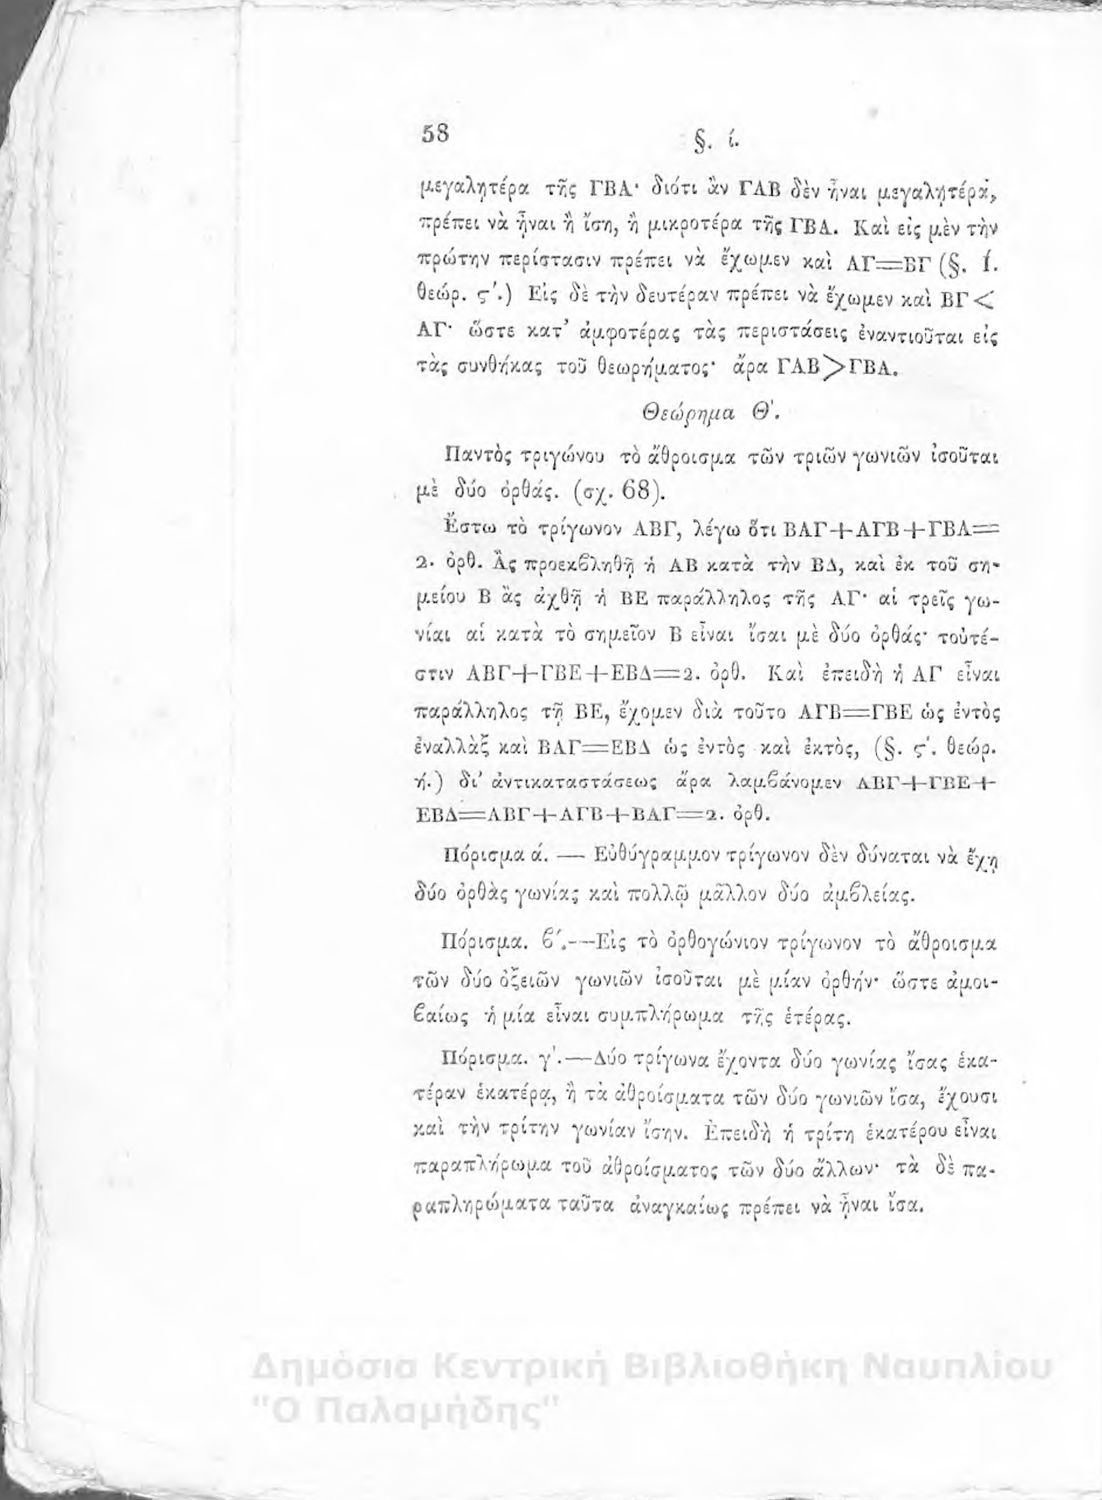 58
§. ί.
μεγαλητέρα τῆς ΓΒΑ· διότι ἂν ΓΑΒ δὲν ἦναι μεγαλητέρα,
πρέπει νὰ ἦναι ἢ ἴση, ἢ μικροτέρα τῆς ΓΒΑ. Καὶ εἰς μὲν τὴν
πρώτην περίστασιν πρέπει νὰ ἔχωμεν καὶ ΑΓ=ΒΓ (§. ί.
θεώρ. ς΄.) Εἰς δὲ τὴν δευτέραν πρέπει νὰ ἔχωμεν καὶ ΒΓ<
ΑΓ· ὥστε κατ’ ἀμφοτέρας τὰς περιστάσεις ἐναντιοῦται εἰς
τὰς συνθήκας τοῦ θεωρήματος· ἄρα ΓΑΒ>ΓΒΑ.
Θεώρημα Θ΄.
Παντὸς τριγώνου τὸ ἄθροισμα τῶν τριῶν γωνιῶν ἰσοῦται
μὲ δύο ὀρθάς. (σχ. 68).
Ἔστω τὸ τρίγωνον ΑΒΓ, λέγω ὅτι ΒΑΓ+ΑΓΒ+ΓΒΑ=
2. ὀρθ. Ἂς προεκβληθῇ ἡ ΑΒ κατὰ τὴν ΒΔ, καὶ ἐκ τοῦ ση-
μείου Β ἂς ἀχθῇ ἡ ΒΕ παράλληλος τῆς ΑΓ· αἱ τρεῖς γω-
νίαι αἱ κατὰ τὸ σημεῖον Β εἶναι ἴσαι μὲ δύο ὀρθάς· τοὐτέ-
στιν ΑΒΓ+ΓΒΕ+ΕΒΔ=2. ὀρθ. Καὶ ἐπειδὴ ἡ ΑΓ εἶναι
παράλληλος τῇ ΒΕ, ἔχομεν διὰ τοῦτο ΑΓΒ=ΓΒΕ ὡς ἐντὸς
ἐναλλὰξ καὶ ΒΑΓ=ΕΒΔ ὡς ἐντὸς καὶ ἐκτὸς, (§. ς΄. θεώρ.
ή.) δι’ ἀντικαταστάσεως ἄρα λαμβάνομεν ΑΒΓ+ΓΒΕ+
ΕΒΔ=ΑΒΓ+ΑΓΒ+ΒΑΓ=2. ὀρθ.
Πόρισμα ά. — Εὐθύγραμμον τρίγωνον δὲν δύναται νὰ ἔχῃ
δύο ὀρθὰς γωνίας καὶ πολλῷ μᾶλλον δύο ἀμβλείας.
Πόρισμα. ϐ΄.—Εἰς τὸ ὀρθογώνιον τρίγωνον τὸ ἄθροισμα
τῶν δύο ὀξειῶν γωνιῶν ἰσοῦται μὲ μίαν ὀρθήν· ὥστε ἀμοι-
βαίως ἡ μία εἶναι συμπλήρωμα τῆς ἑτέρας.
Πόρισμα. γ΄.—Δύο τρίγωνα ἔχοντα δύο γωνίας ἴσας ἑκα-
τέραν ἑκατέρᾳ, ἢ τὰ ἀθροίσματα τῶν δύο γωνιῶν ἴσα, ἔχουσι
καὶ τὴν τρίτην γωνίαν ἴσην. Ἐπειδὴ ἡ τρίτη ἑκατέρου εἶναι
παραπλήρωμα τοῦ ἀθροίσματος τῶν δύο ἄλλων· τὰ δὲ πα-
ραπληρώματα ταῦτα ἀναγκαίως πρέπει νὰ ἦναι ἴσα.
Δημόσια Κεντρική Βιβλιοθήκη Ναυπλίου
"Ο Παλαμήδης"